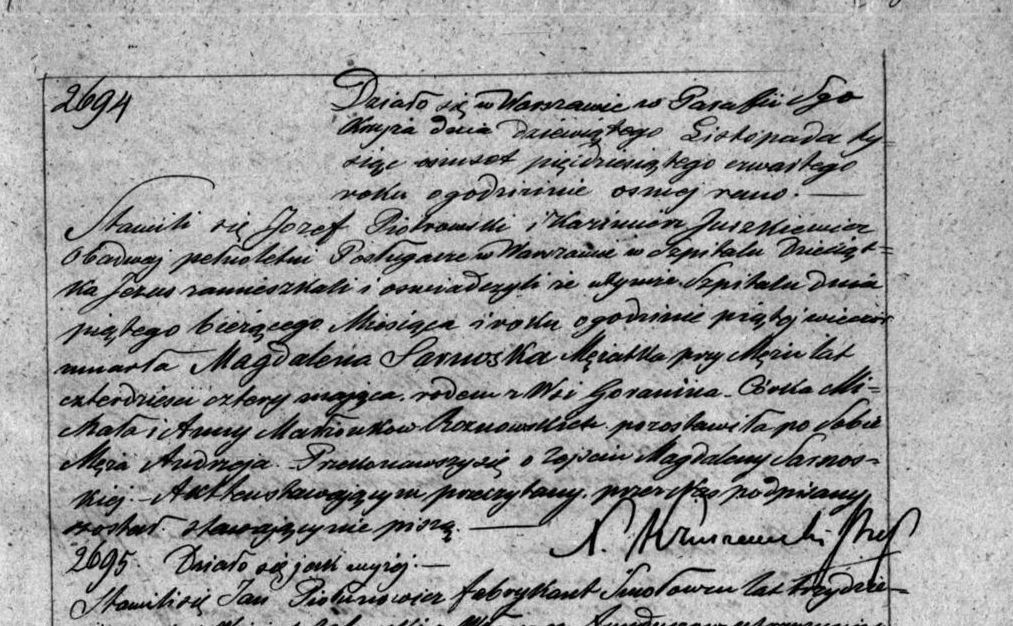 2694
Działo się w Warszawie w Parafii Sgo
Krzyża dnia dziewiątego Listopada ty-
siąc osmset pięćdziesiątego czwartego
roku o godzinie osmej rano. —
Stawili się Józef Piotrowski i Kazimierz Juszkiewicz
Obadwaj pełnoletni Posługacze w Warszawie w Szpitalu Dzieciąt-
ka Jezus zamieszkali i oświadczyli że w tymże Szpitalu dnia
piątego bieżącego Miesiąca i roku o godzinie piątej wieczór
umarła Magdalena Sarnoska Mężatka przy Mężu lat
czterdzieści cztery mająca. rodem z Wsi Goranina - Córka Mi-
chała i Anny Małżonków Roznowskich. pozostawiła po Sobie
Męża Andrzeja. Przekonawszy się o zejściu Magdaleny Sarnos-
kiej - Akt ten stawającym przeczytany. przez Nas podpisany
został. stawający nie piszą. —
2695. Działo się jak wyżej. —
Stawili się Jan fabrykant lat trzydzie-